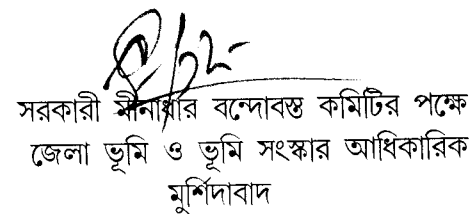 সরকারী মীনাধার বন্দোবস্ত কমিটির পক্ষে
জেলা ভূমি ও ভূমি সংস্কার আধিকারিক
মুর্শিদাবাদ